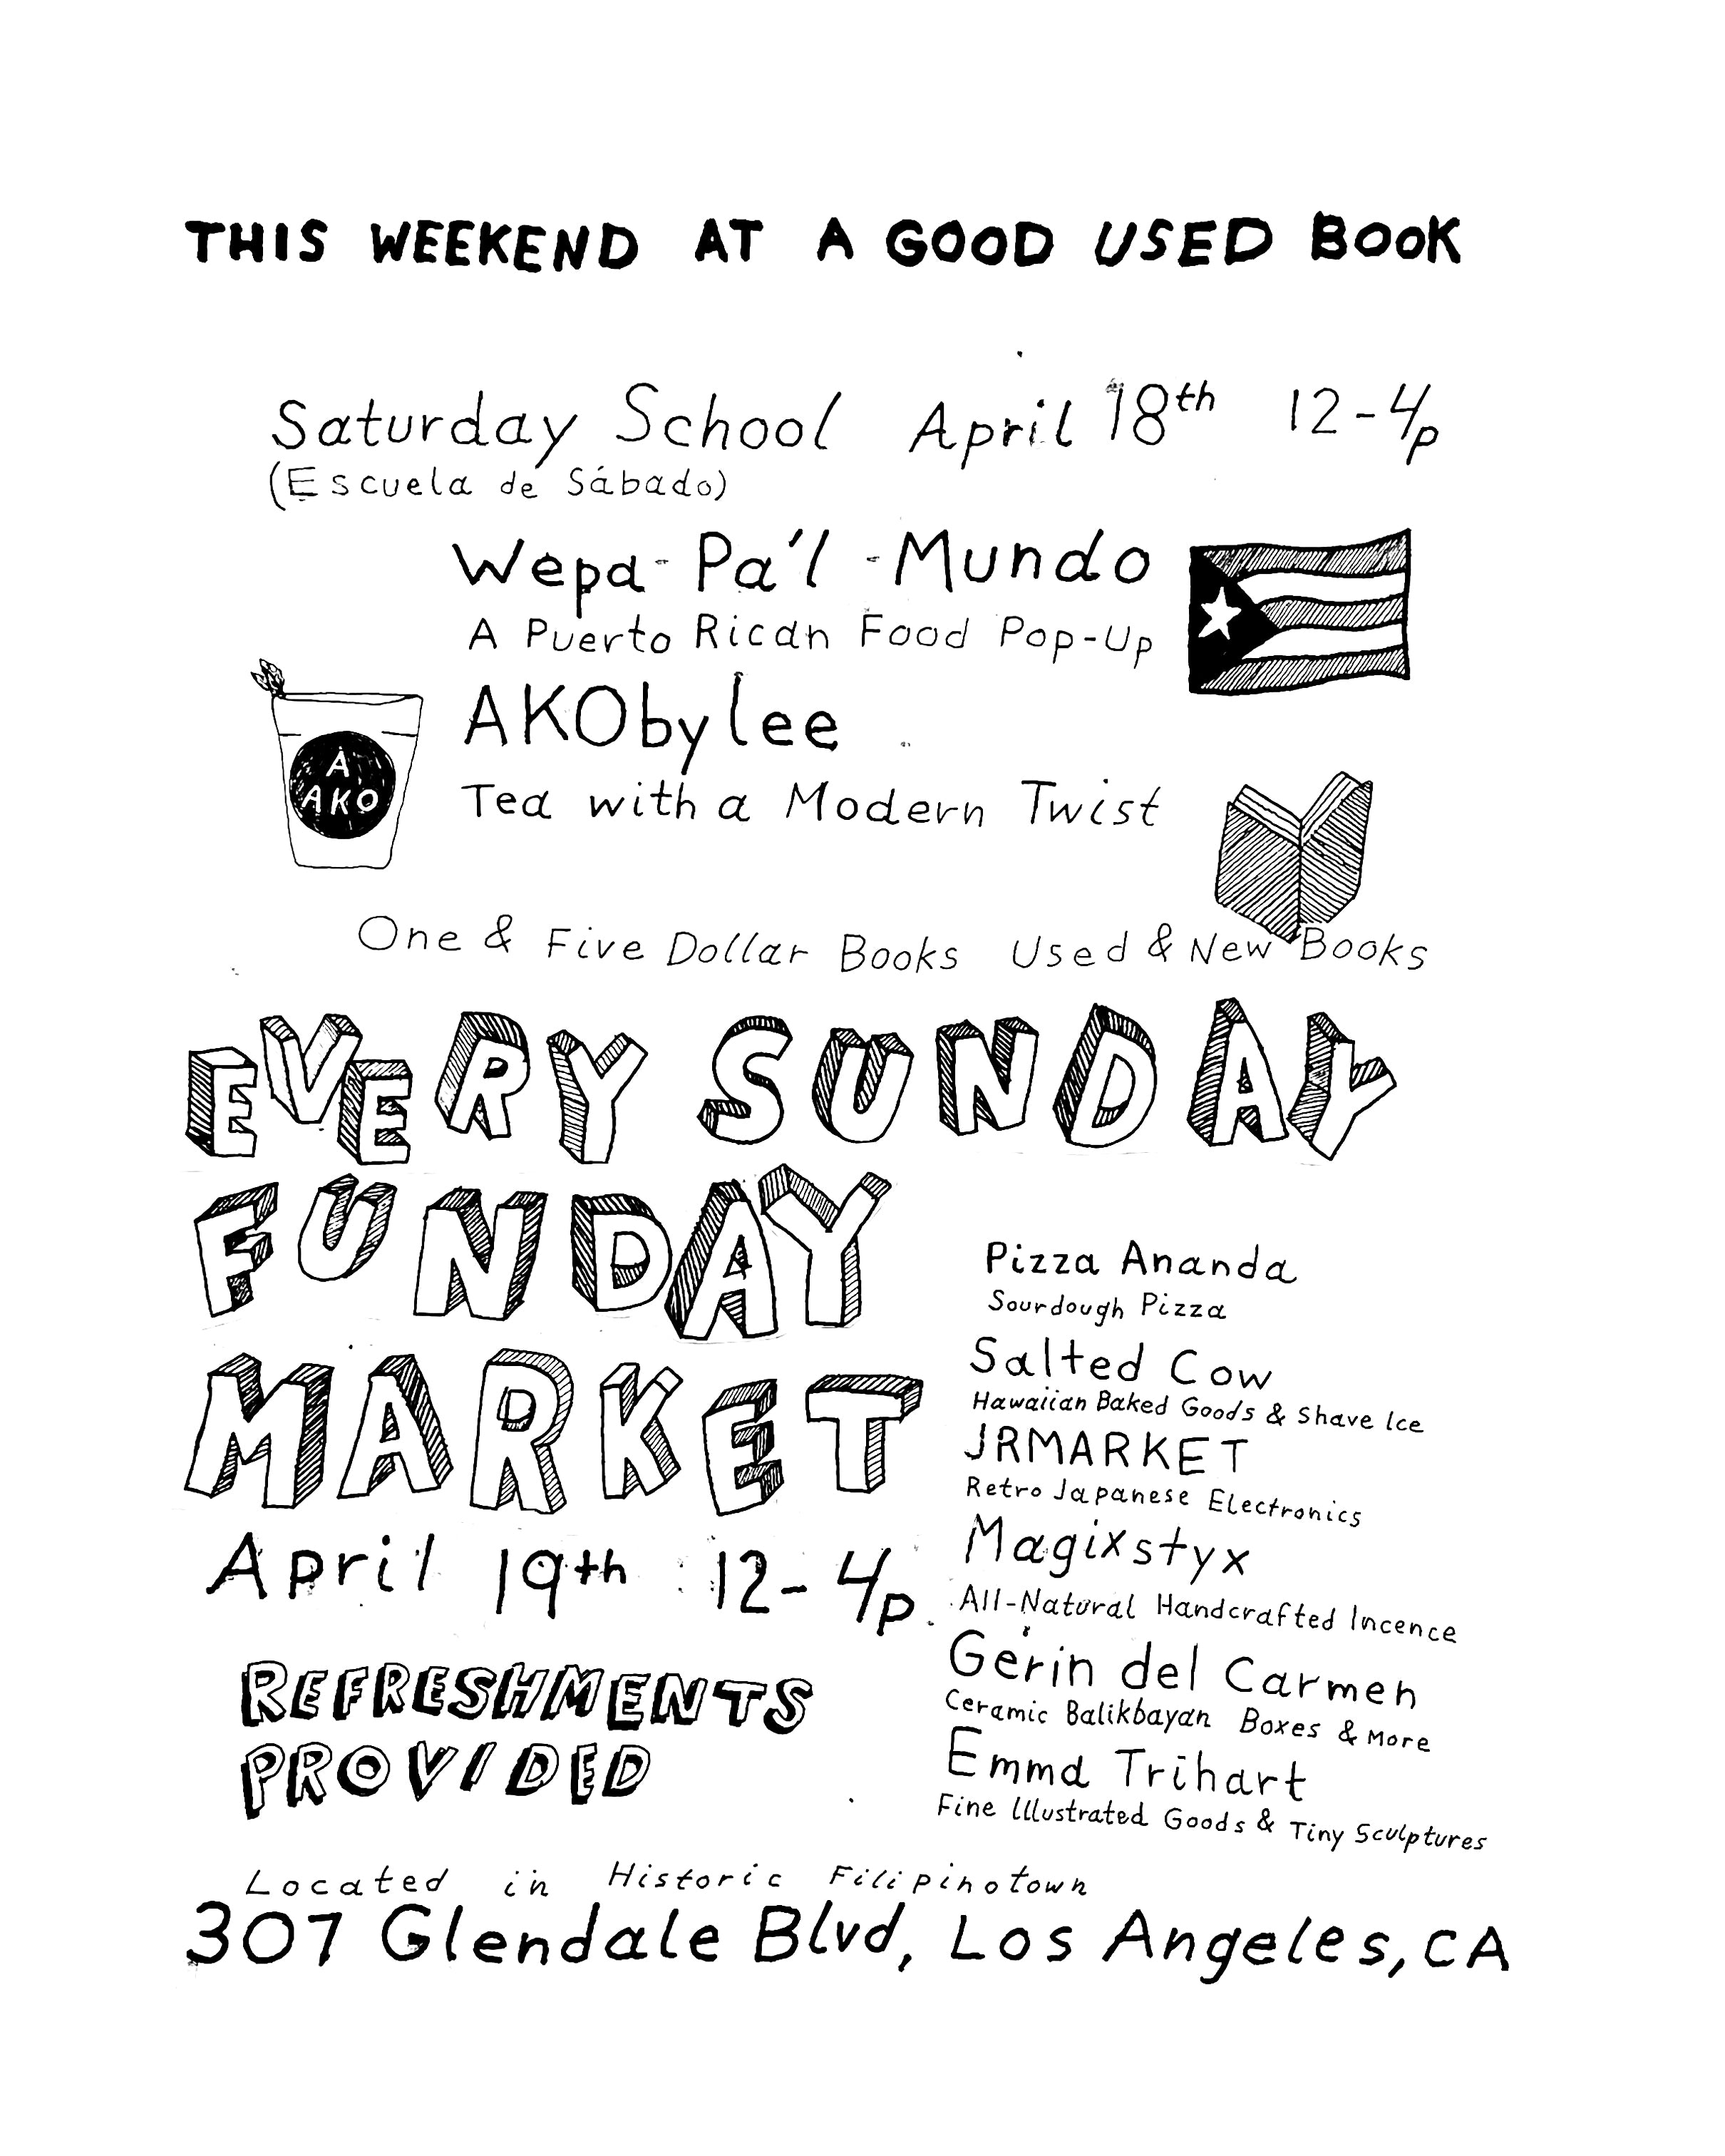 THIS WEEKEND AT A GOOD USED BOOK
Saturday School April 18th 12-4p
(Escuela de Sábado)
Wepa-Pa'l-Mundo
A Puerto Rican Food Pop-Up
AKObylee
Tea with a Modern Twist
A
AKO
One & Five Dollar Books Used & New Books
EVERY SUNDAY
FUNDAY
MARKET
April 19th 12-4p
REFRESHMENTS
PROVIDED
Pizza Ananda
Sourdough Pizza
Salted Cow
Hawaiian Baked Goods & Shave Ice
JRMARKET
Retro Japanese Electronics
Magixstyx
All-Natural Handcrafted Incence
Gerin del Carmen
Ceramic Balikbayan Boxes & More
Emma Trihart
Fine Illustrated Goods & Tiny Sculptures
Located in Historic Filipinotown
307 Glendale Blvd, Los Angeles, CA